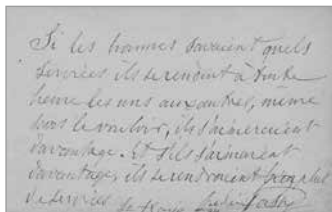 Si les hommes savaient quels
services ils se rendent à toute
heure les uns aux autres, même
sans le vouloir, ils s'aimeraient
davantage. Et s'ils s'aimaient
davantage, ils se rendraient bien plus
de services.